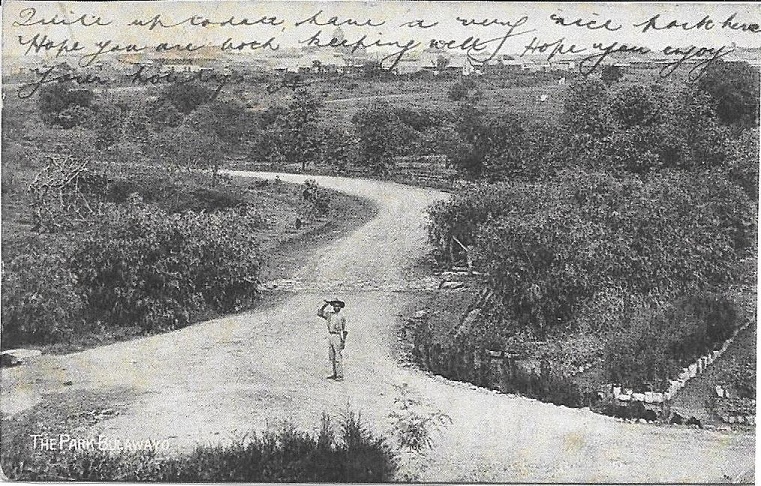 Quite up to date, have a very nice park here
Hope you are both keeping well, Hope you enjoy
Your holidays
THE PARK BULAWAYO